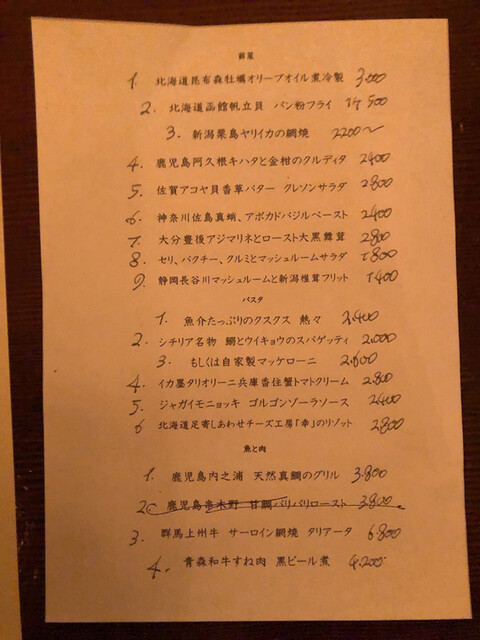 前菜
1. 北海道昆布森牡蠣オリーブオイル煮冷製 3,000
2. 北海道函館帆立貝 パン粉フライ 1ケ 500
3. 新潟粟島ヤリイカの網焼 2200〜
4. 鹿児島阿久根キハタと金柑のクルディタ 2400
5. 佐賀アコヤ貝香草バター クレソンサラダ 2800
6. 神奈川佐島真蛸、アボカドバジルペースト 2400
7. 大分豊後アジマリネとロースト大黒舞茸 2800
8. セリ、パクチー、クルミとマッシュルームサラダ 1800
9. 静岡長谷川マッシュルームと新潟椎茸フリット 1400
パスタ
1. 魚介たっぷりのクスクス 熱々 2,400
2. シチリア名物 鰯とウイキョウのスパゲッティ 2,000
3. もしくは自家製マッケローニ 2,600
4. イカ墨タリオリーニ兵庫香住蟹トマトクリーム 2,800
5. ジャガイモニョッキ ゴルゴンゾーラソース 2400
6 北海道足寄しあわせチーズ工房「幸」のリゾット 2800
魚と肉
1. 鹿児島内之浦 天然真鯛のグリル 3,800
2. 鹿児島串木野 甘鯛パリパリロースト 3,800
3. 群馬上州牛 サーロイン網焼 タリアータ 6,800
4. 青森和牛すね肉 黒ビール煮 4,200